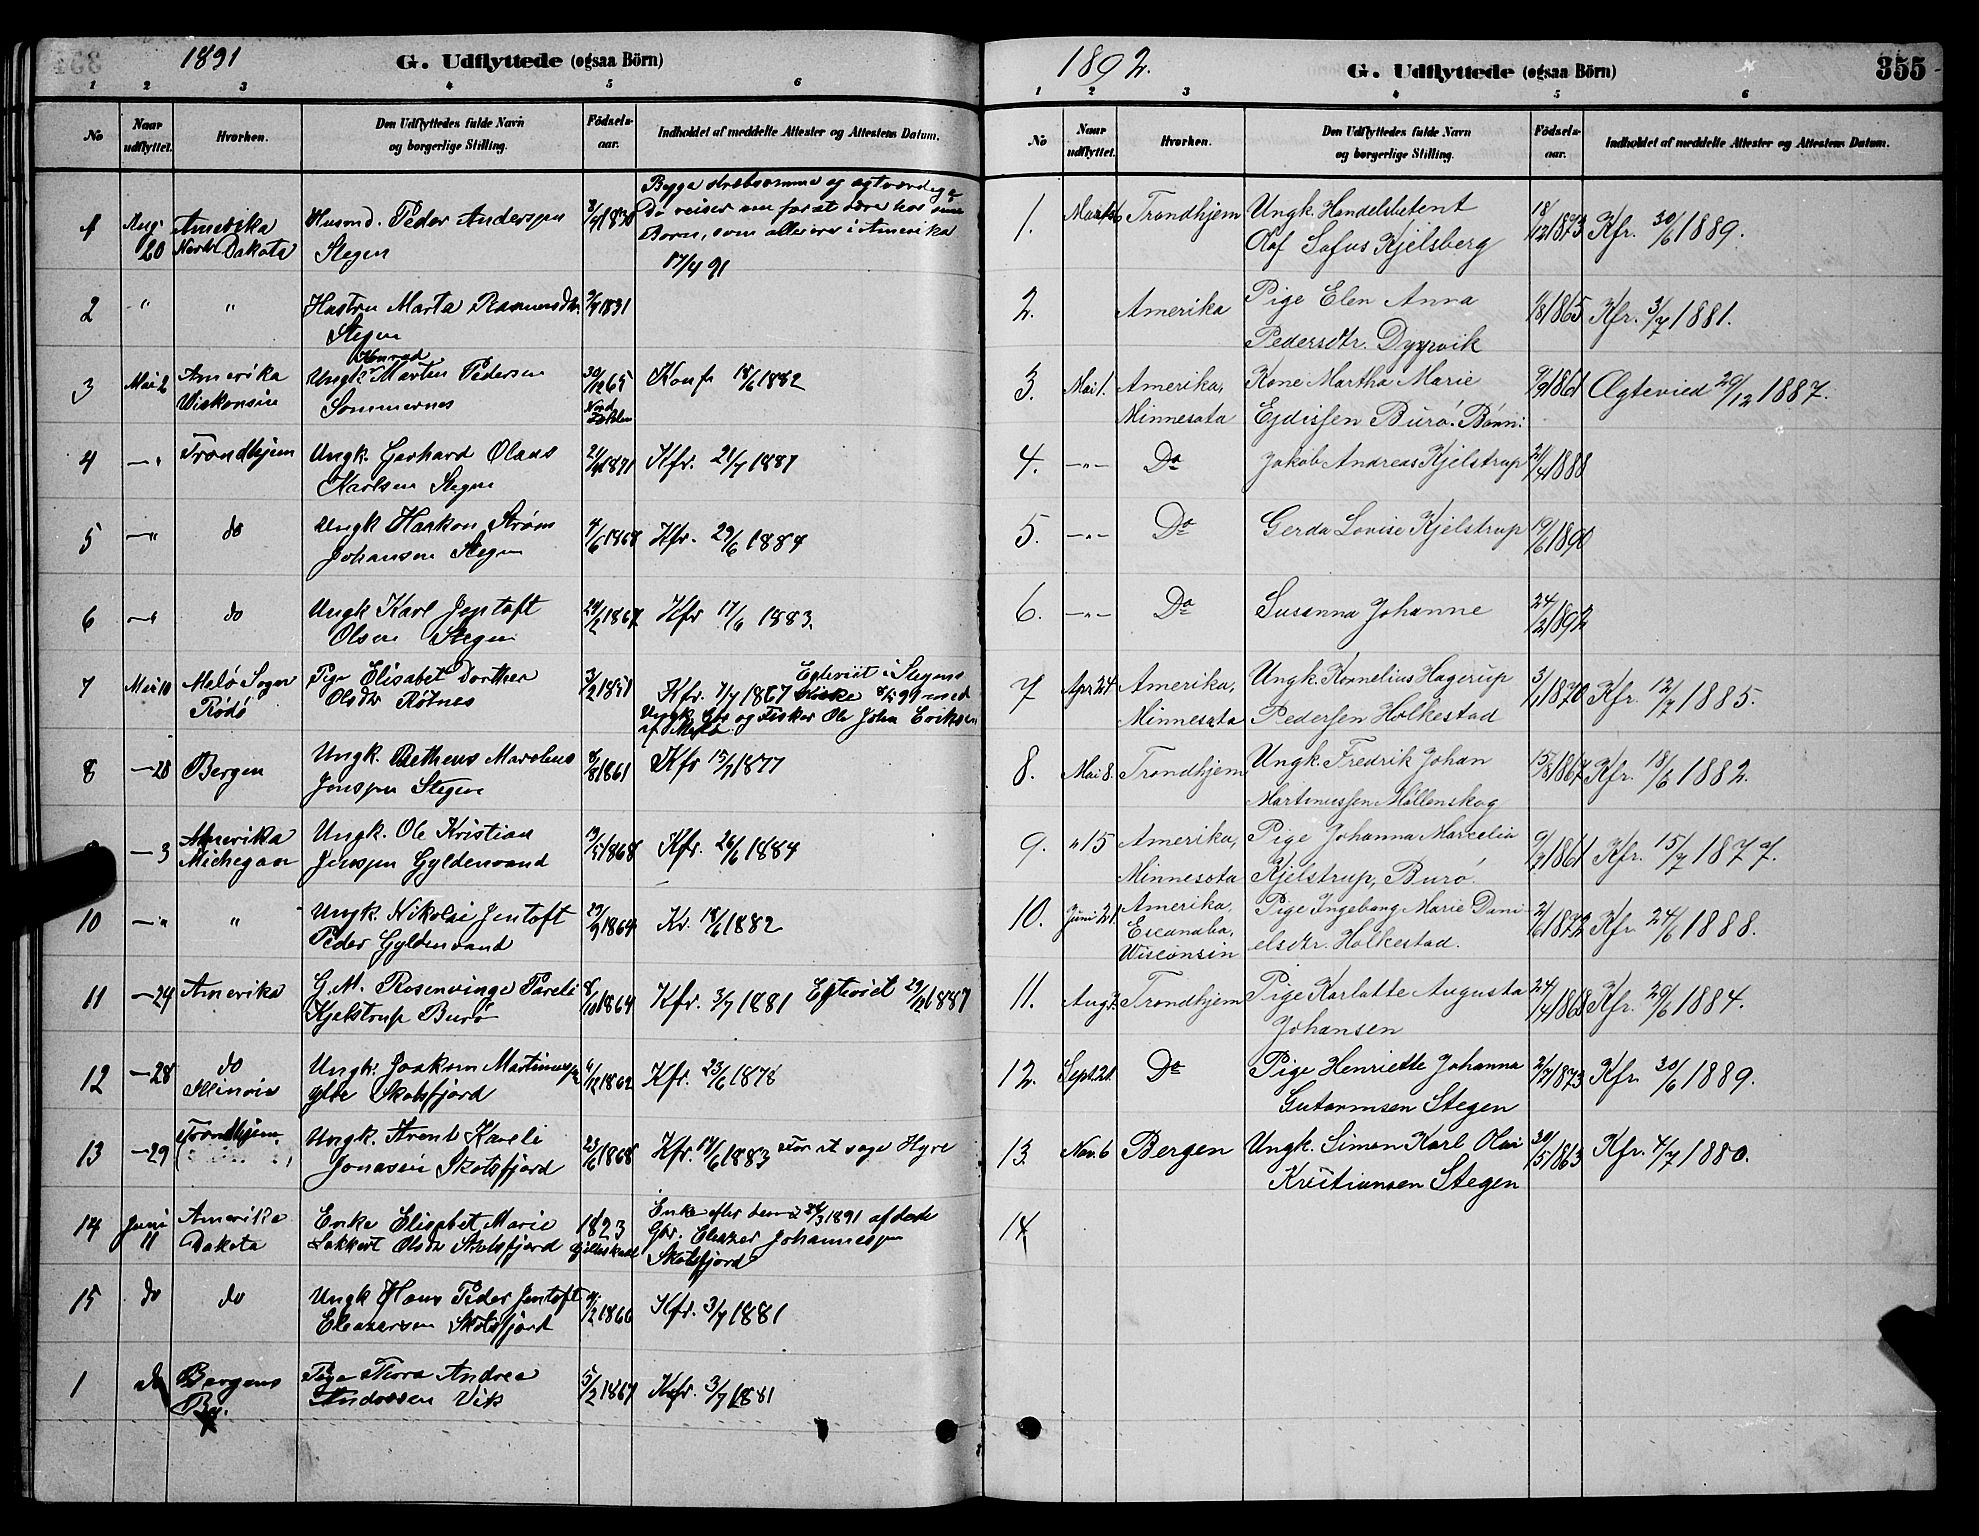 1891
G. Udflyttede (ogsaa Börn)
1 2 3 4 5 6
No
Naar udflyttet.
Hvorhen.
Den Udflyttedes fulde Navn
og borgerlige Stilling.
Födsels-
aar.
Indholdet af meddelte Attester og Attestens Datum.
Begge strebsomme og agtværdige
1 Aug 20 Amerika Husmd. Peder Anderssen 1830 De reiser nu for at være hos sine
North Dakota Stegen Børn, som alle ere i Amerika
17/4 91
2 " " Hustru Marta Rasmusdtr. 1831
Stegen
Konrad
3 Mai 2 Amerika Ungk. Martin Pedersen 30/12 65 Konf. 18/6 1882
Wiskonsin Sommernes
4 — " Trondhjem Ungk. Gerhard Olaus 1871 Kfr. 21/7 1887
Karlsen Stegen
5 — " do Ungk Haakon Strøm 4/6 1868 Kfr. 29/6 1884
Johansen Stegen
6 — " do Ungk Karl Jentoft 1867 Kfr 17/6 1883.
Olsen Stegen
7 Mai 10 Melø Sogn Pige Elisabet Dorthea 3/2 1851 Kfr. 7/7 1867 Egteviet i Stegens
Rødø Olsdtr Røtnes Kirke med
Ungk. Gbr og Fisker Ole Johan Eriksen
af Melø
8 — 28 Bergen Ungk. Marelius 1861 Kfr 15/7 1877
Jenssen Stegen
— 3 Amerika Ungk. Ole Kristian 1868 Kfr. 26/6 1884
Michegan Jenssen Gyldenvand
10 — " " Ungk. Nikolai Jentoft 1864 Kr. 18/6 1882
Peder Gyldenvand
11 — 24 Amerika G.M. Rosenvinge Pareli 8/10 1864 Kfr. 3/7 1881 Egteviet 29/12 1887
Kjelstrup Burø
12 — 28 do Ungk. Joakim Martinussen 1862 Kfr. 23/6 1878
Illinois Skotsfjord
13 — 29 Trondhjem Ungk. Arent Kareli 1868 Kfr. 17/6 1883 for at søge Hyre
Jonassen Skotsfjord
14 Juni 11 Amerika Enke Elisabet Marie 1823 Enke efter den 1891 afdøde
Dakota Lokkert Olsdtr Skotsfjord Gilleskaal Gbr. Eleazer Johannessen
Skotsfjord
15 do do Ungk Hans Peder Jentoft 1866 Kfr. 3/7 1881
Eleazersen Skotsfjord
1 do Bergens Pige Thora Andrea 5/2 1867 Kfr. 3/7 1881
By. Andersen Vik
1892.
G. Udflyttede (ogsaa Börn)
355
1 2 3 4 5 6
No
Naar udflyttet.
Hvorhen.
Den Udflyttedes fulde Navn
og borgerlige Stilling.
Födsels-
aar.
Indholdet af meddelte Attester og Attestens Datum.
1. Trondhjem Ungk. Handelsbetent 18/12 1873 Kfr. 30/6 1889.
Olaf Sofus Kjelsberg
2. Amerika Pige Elen Anna 1865 Kfr. 3/7 1881.
Pedersdtr. Dypvik
3. Mai 1. Amerika, Kone Martha Marie 1861 Ægteviet 29/12 1887.
Minnesota Ejdissen Burø. Børn:
4. — " — Do Jakob Andreas Kjelstrup 1888
5. — " — Do Gerda Lovise Kjelstrup 19/6 1890
6. — " — Do Susanna Johanne 24/2 1892
7 Apr 24 Amerika, Ungk. Kornelius Hagerup 3/1 1870 Kfr. 12/7 1885.
Minnesota Pederssen Holkestad
8. Mai 8. Trondhjem Ungk. Fredrik Johan 15/8 1867 Kfr. 18/6 1882.
Martinussen Møllenskog
9. " 15 Amerika, Pige Johanna Marcelia 9/3 1861 Kfr. 15/7 1877.
Minnesota Kjelstrup, Burø
10. Juni 21. Amerika, Pige Ingebaug Marie Dani- 2/6 1872 Kfr. 24/6 1888.
Escanaba, elsdtr. Holkestad.
Wisconsin
11. Aug 7. Trondhjem Pige Karlotte Augusta 24/4 1868 Kfr. 29/6 1884.
Johansen
12. Sept. 21. Do Pige Henriette Johanna 2/7 1873 Kfr. 30/6 1889.
Gutormsen Stegen
13. Nov. 6 Bergen Ungk. Simon Karl Olai 30/5 1863 Kfr. 4/7 1880.
Kristiansen Stegen
14